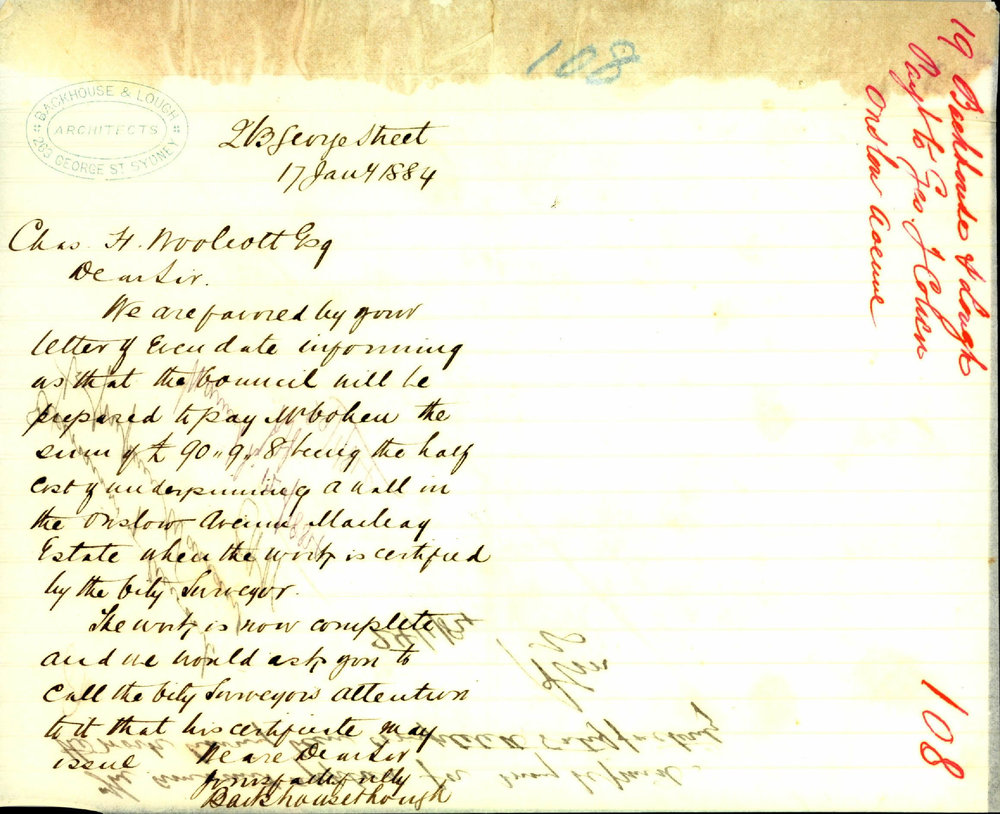 108
BACKHOUSE & LOUGH
ARCHITECTS
263 GEORGE ST SYDNEY
263 George Street
17 Jany 1884
Chas. H. Woolcott Esq
Dear Sir.
We are favored by your
letter of Even date informing
us that the Council will be
prepared to pay Mr Cohen the
sum of £90,,9,,8 being the half
cost of underpinning a wall in
the Onslow Avenue Macleay
Estate when the work is certified
by the City Surveyor.
The work is now complete
and we would ask you to
call the City Surveyors attention
to it that his certificate may
issue
We are Dear Sir
yours respectfully
Backhouse & Lough
19 Backhouse & Lough
Payt to Geo. J Cohen
Onslow Avenue
108